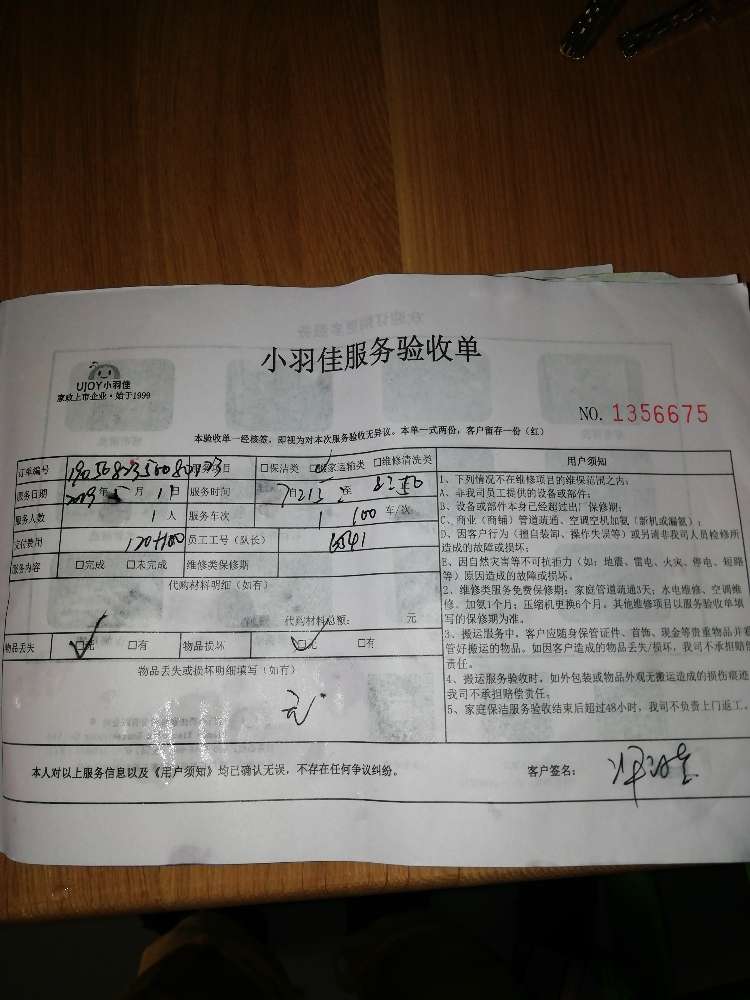 小羽佳服务验收单
UJOY小羽佳
家政上市企业·始于1999
NO. 1356675
本验收单一经核签，即视为对本次服务验收无异议。本单一式两份，客户留存一份（红）
订单编号 项目 □保洁类 搬家运输类 □维修清洗类
服务日期 2019年 月1日 服务时间
服务人数 1人 服务车次 1 100 车/次
支付费用 120+100 员工工号（队长）
服务内容 □完成 □未完成 维修类保修期
代购材料明细（如有）
代购材料总额： 元
物品丢失 □无 □有 物品损坏 □无 □有
物品丢失或损坏明细填写（如有）
无
用户须知
1、下列情况不在维修项目的维保范围之内：
A、非我司员工提供的设备或部件；
B、设备或部件本身已经超过出厂保修期；
C、商业（商铺）管道疏通、空调空机加氨（新机或漏氨）；
D、因客户行为（擅自装卸、操作失误等）或另请非我司人员检修所
造成的故障或损坏；
E、因自然灾害等不可抗拒力（如：地震、雷电、火灾、停电、短路
等）原因造成的故障或损坏。
2、维修类服务免费保修期：家庭管道疏通3天；水电维修、空调维
修、加氨1个月；压缩机更换6个月。其他维修项目以服务验收单填
写的保修期为准。
3、搬运服务中，客户应随身保管证件、首饰、现金等贵重物品并看
管好搬运的物品。如因客户造成的物品丢失/损坏，我司不承担赔偿
责任。
4、搬运服务验收时，如外包装或物品外观无搬运造成的损伤痕迹
我司不承担赔偿责任。
5、家庭保洁服务验收结束后超过48小时，我司不负责上门返工。
本人对以上服务信息以及《用户须知》均已确认无误，不存在任何争议纠纷。 客户签名：